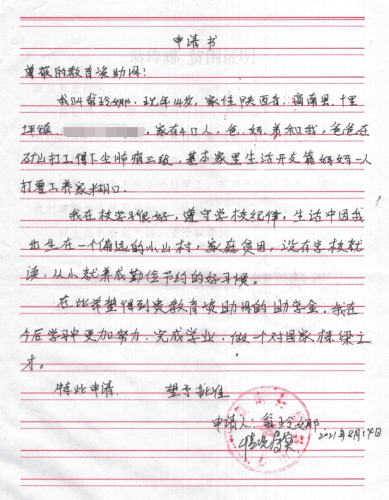 申请书
尊敬的教育资助网!
我叫翁玲娜,现年14岁,家住陕西省,商南县,十里
坪镇,家有4口人,爸、妈、弟和我,爸爸在
矿山打工得下尘肺病三级,基本家里生活开支靠妈妈一人
打零工养家糊口。
我在校学习很好,遵守学校纪律,生活中因我
出生在一个偏远的小山村,家庭贫困,没在学校就
读,从小就养成勤俭节约的好习惯。
在此希望得到贵教育资助网的助学金,我在
今后学习中更加努力、完成学业,做一个对国家栋梁之
才。
特此申请 望予批准
申请人:翁玲娜
情况属实 2021年8月17日